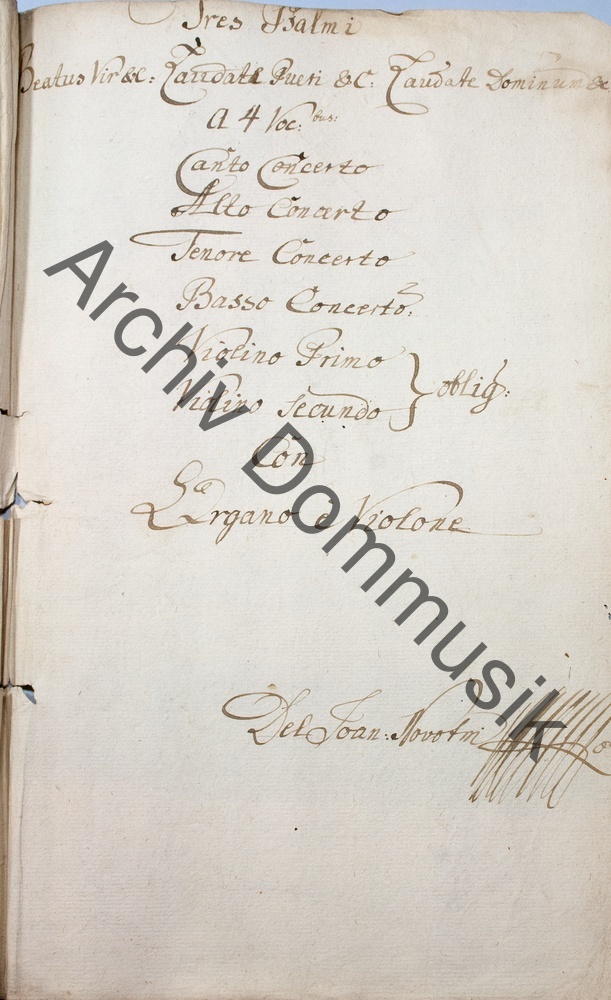 Tres Psalmi
Beatus Vir &c: Laudate Pueri &c: Laudate Dominum &c
a 4 Voc:bus:
Canto Concerto
Alto Concerto
Tenore Concerto
Basso Concerto:
Violino Primo
Violino Secundo
oblig:
Con
L'Organo e Violone
Del Joan: Novotni
Archiv Dommusik